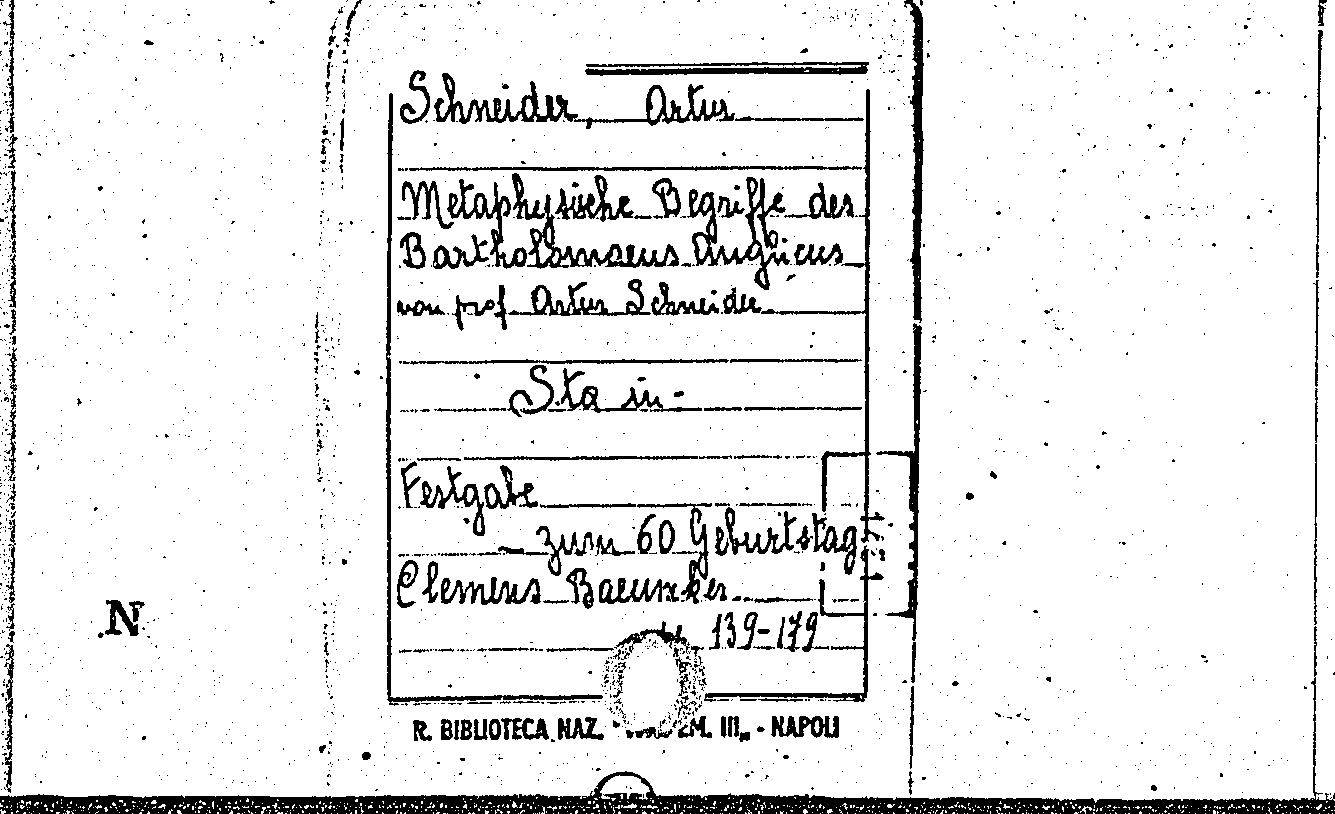 Schneider, Artur
Metaphysische Begriffe des
Bartholomaeus Anglicus
von prof. Artur Schneider
Sta in-
Festgabe
- zum 60 Geburtstag
Clemens Baeumker
139-179
N
R. BIBLIOTECA NAZ. EM. III„ - NAPOLI